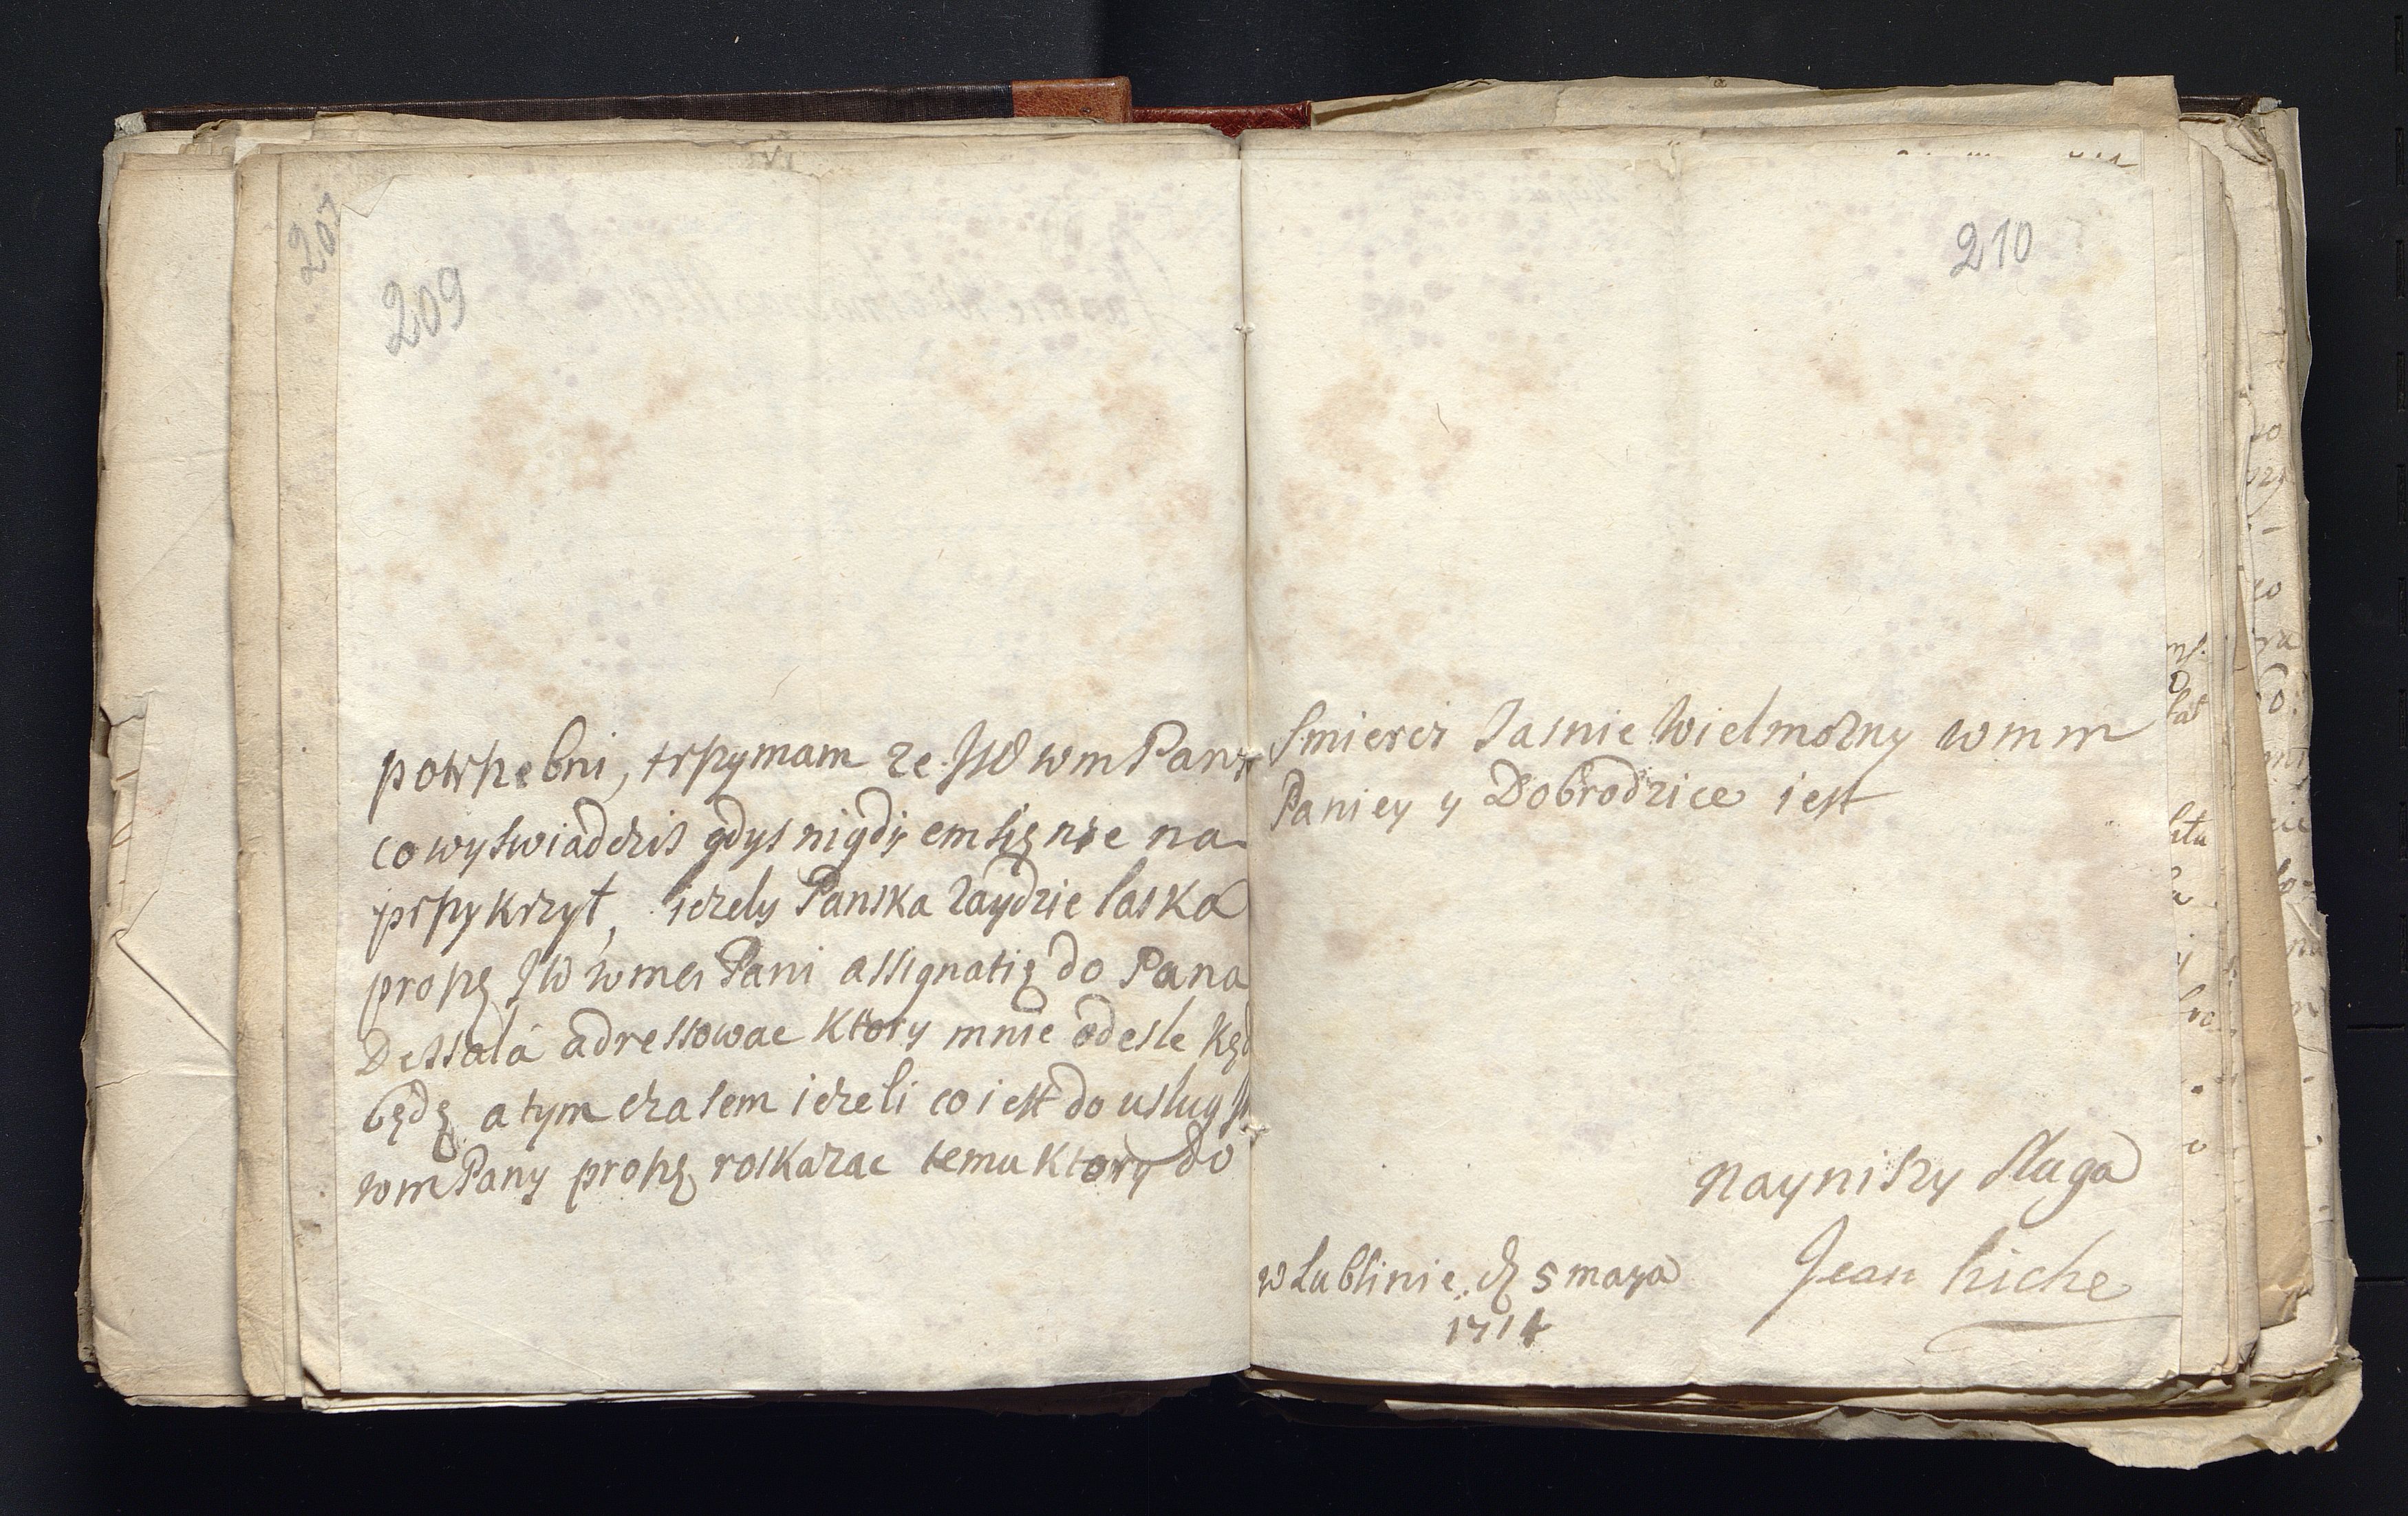 207
209
potrhebni, trhymam ze JW wm Pany
co wyswiadczis gdys nigdy em się nie na
prhykrzył, ieżely Panska zaydzie laska
prohę JW wmei Pani assignatię do Pana
Dessala adressowac ktory mnie odesle kęd
będę a tym czasem ieżeli co iest do uslug
wm Pany prohę roskazac temu ktory do
210
Smierci Jasnie Wielmożny wm m
Paniey y Dobrodzice iest
Nayniszy sluga
Jean Riche
w Lublinie d 5 maya
1714